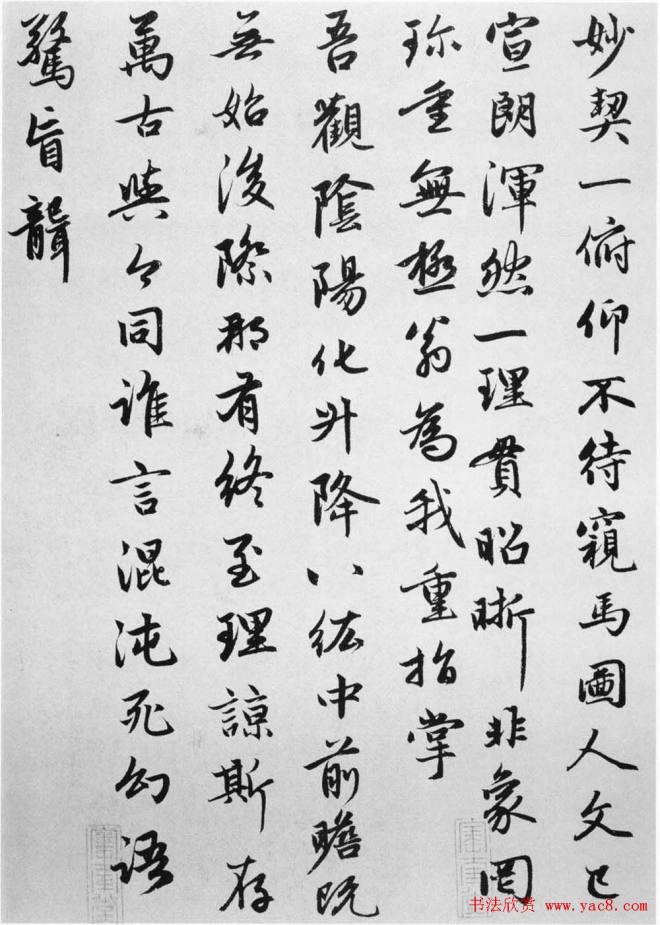 妙契一俯仰不待窺馬圖人文已
宣朗渾然一理貫昭晰非象罔
珎重無極翁為我重指掌
吾觀陰陽化升降八紘中前瞻既
無始後際那有終至理諒斯存
萬古與今同誰言混沌死幻語
驚盲聾
书法欣赏 www.yac8.com